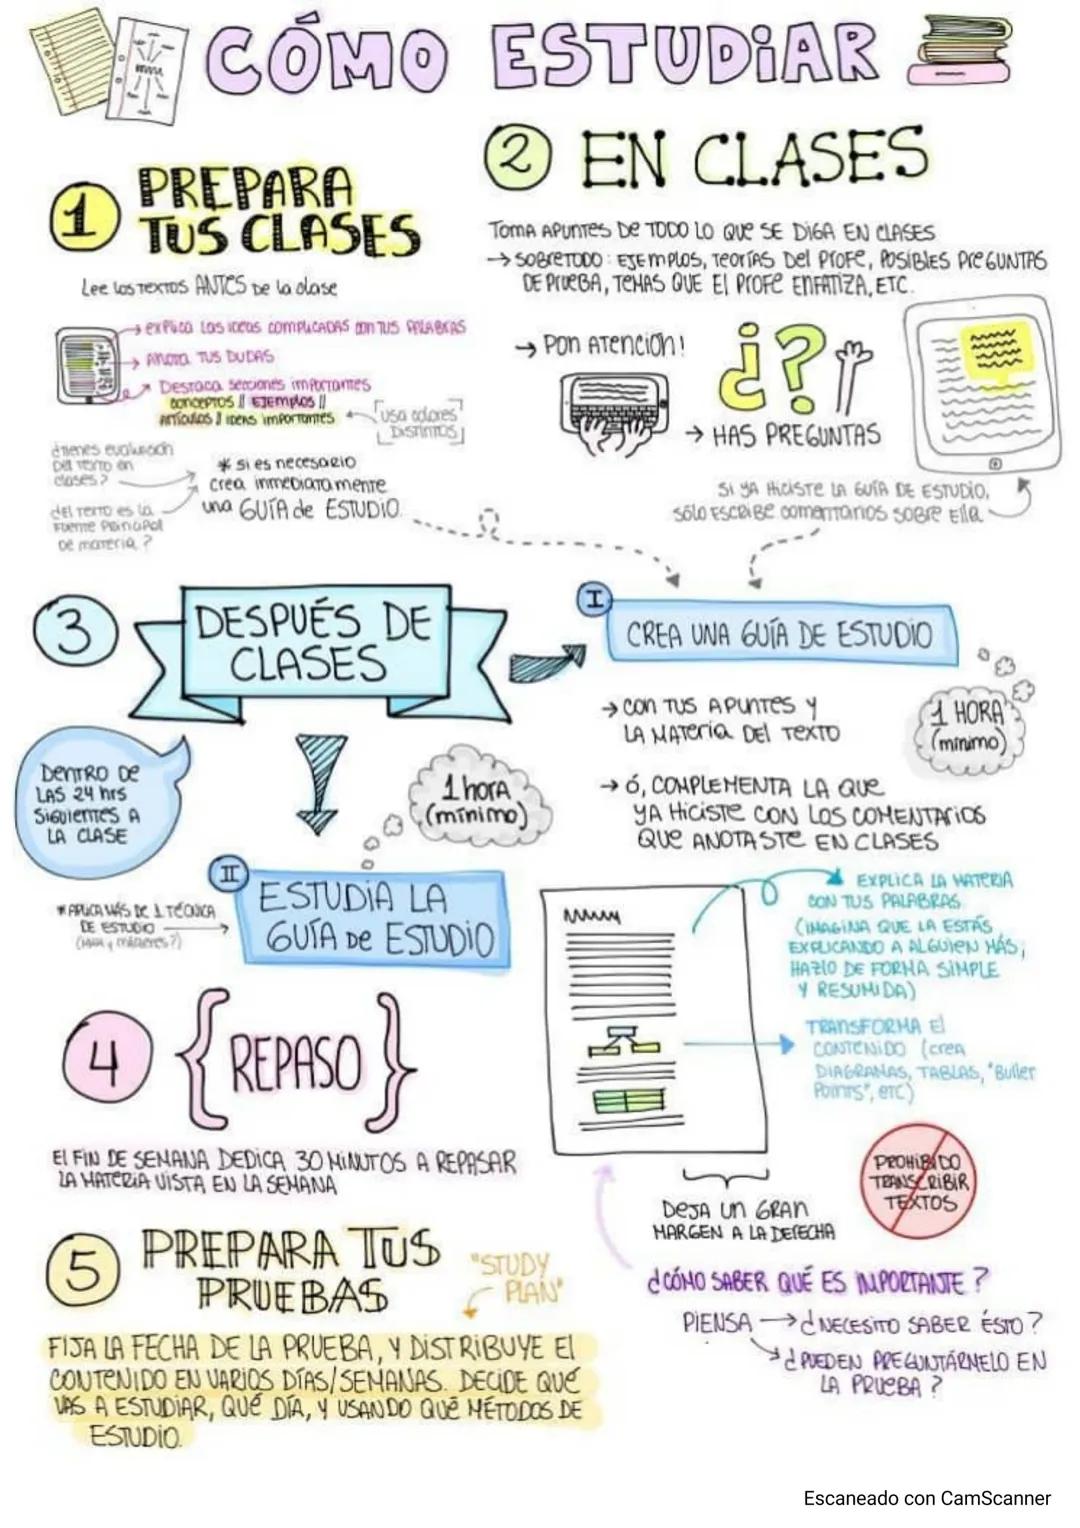 CÓMO ESTUDiAR
1 PREPARA
TUS CLASES
Lee los TEXTOS ANTES De la clase
→ explica las ideas complicadas con TUS PALABRAS
→ Anota TUS DUDAS
→ Destaca secciones importantes
conceptos || Ejemplos ||
Artículos || ideas importantes
Usa colores
DISTINTOS
¿Tienes evaluación
Del Texto en
clases?
¿El Texto es la
Fuente Principal
De materia?
* si es necesario
crea inmediatamente
una GUÍA de ESTUDIO.
2 EN CLASES
Toma APUNTES De TODO LO QUE SE DiGA EN CLASES
→ SOBRETODO: EJEMPLOS, TEORÍAS Del PROFE, POSIBLES PREGUNTAS
DE PRUEBA, TEMAS QUE El PROFE ENFATIZA, ETC.
→ Pon Atención!
¿?
→ HAS PREGUNTAS
Si YA HiCiSTE LA GUÍA DE ESTUDIO,
SÓLO ESCRIBE comentarios SOBRE Ella
3 DESPUÉS DE
CLASES
DENTRO De
LAS 24 hrs
SIGUIENTES A
LA CLASE
I CREA UNA GUÍA DE ESTUDIO
1 HORA
(mínimo)
→ CON TUS APUNTES Y
LA MATERIA DEL TEXTO
→ Ó, COMPLEMENTA LA QUE
YA HiCiSTE CON LOS COMENTARIOS
QUE ANOTASTE EN CLASES
1 hora
(mínimo)
II ESTUDIA LA
GUÍA De ESTUDIO
* APLICA MÁS DE 1 TÉCNICA
DE ESTUDIO
EXPLICA LA MATERIA
CON TUS PALABRAS
(IMAGINA QUE LA ESTÁS
EXPLICANDO A ALGUIEN MÁS,
HAZLO DE FORMA SIMPLE
Y RESUMIDA)
TRANSFORMA El
CONTENIDO (crea
DIAGRAMAS, TABLAS, "Bullet
Points", etc)
PROHIBIDO
TRANSCRIBIR
TEXTOS
DEJA UN GRAN
MARGEN A LA DERECHA
¿CÓMO SABER QUÉ ES IMPORTANTE?
PIENSA → ¿NECESITO SABER ÉSTO?
→ ¿PUEDEN PREGUNTÁRMELO EN
LA PRUEBA?
4 {REPASO}
El FIN DE SEMANA DEDICA 30 MINUTOS A REPASAR
LA MATERIA VISTA EN LA SEMANA
5 PREPARA TUS
PRUEBAS
"STUDY
PLAN"
FIJA LA FECHA DE LA PRUEBA, Y DISTRIBUYE El
CONTENIDO EN VARIOS DÍAS/SEMANAS. DECIDE QUÉ
VAS A ESTUDIAR, QUÉ DÍA, Y USANDO QUÉ MÉTODOS DE
ESTUDIO.
Escaneado con CamScanner